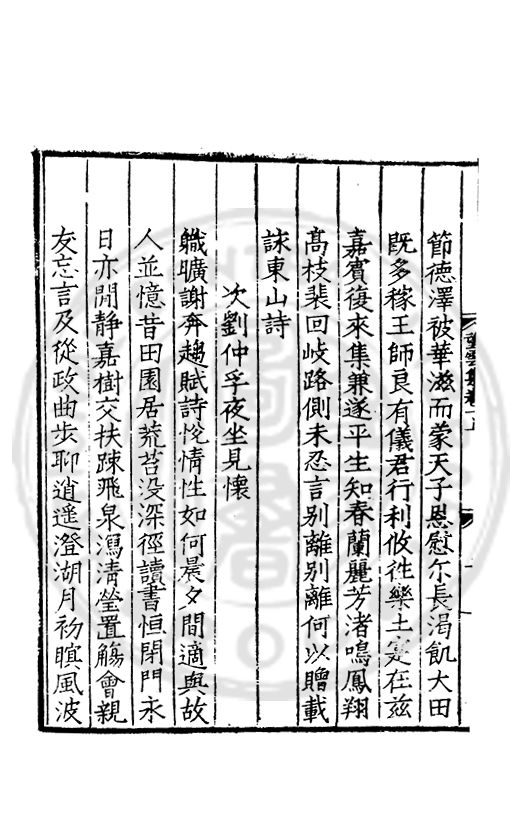 節德澤被華滋而蒙天子恩慰尓長渴飢大田
既多稼王師良有儀君行利攸徃樂土寔在兹
嘉賓復來集兼遂平生知春蘭麗芳渚鳴鳳翔
髙枝裴回岐路側未忍言别離别離何以贈載
誄東山詩
次劉仲孚夜坐見懷
職曠謝奔趨賦詩恱情性如何晨夕間適與故
人並憶昔田園居荒苔没深徑讀書恒閉門永
日亦閒静嘉樹交扶踈飛泉瀉清瑩置觴會親
友忘言及從政曲歩聊逍遥澄湖月初暄風波